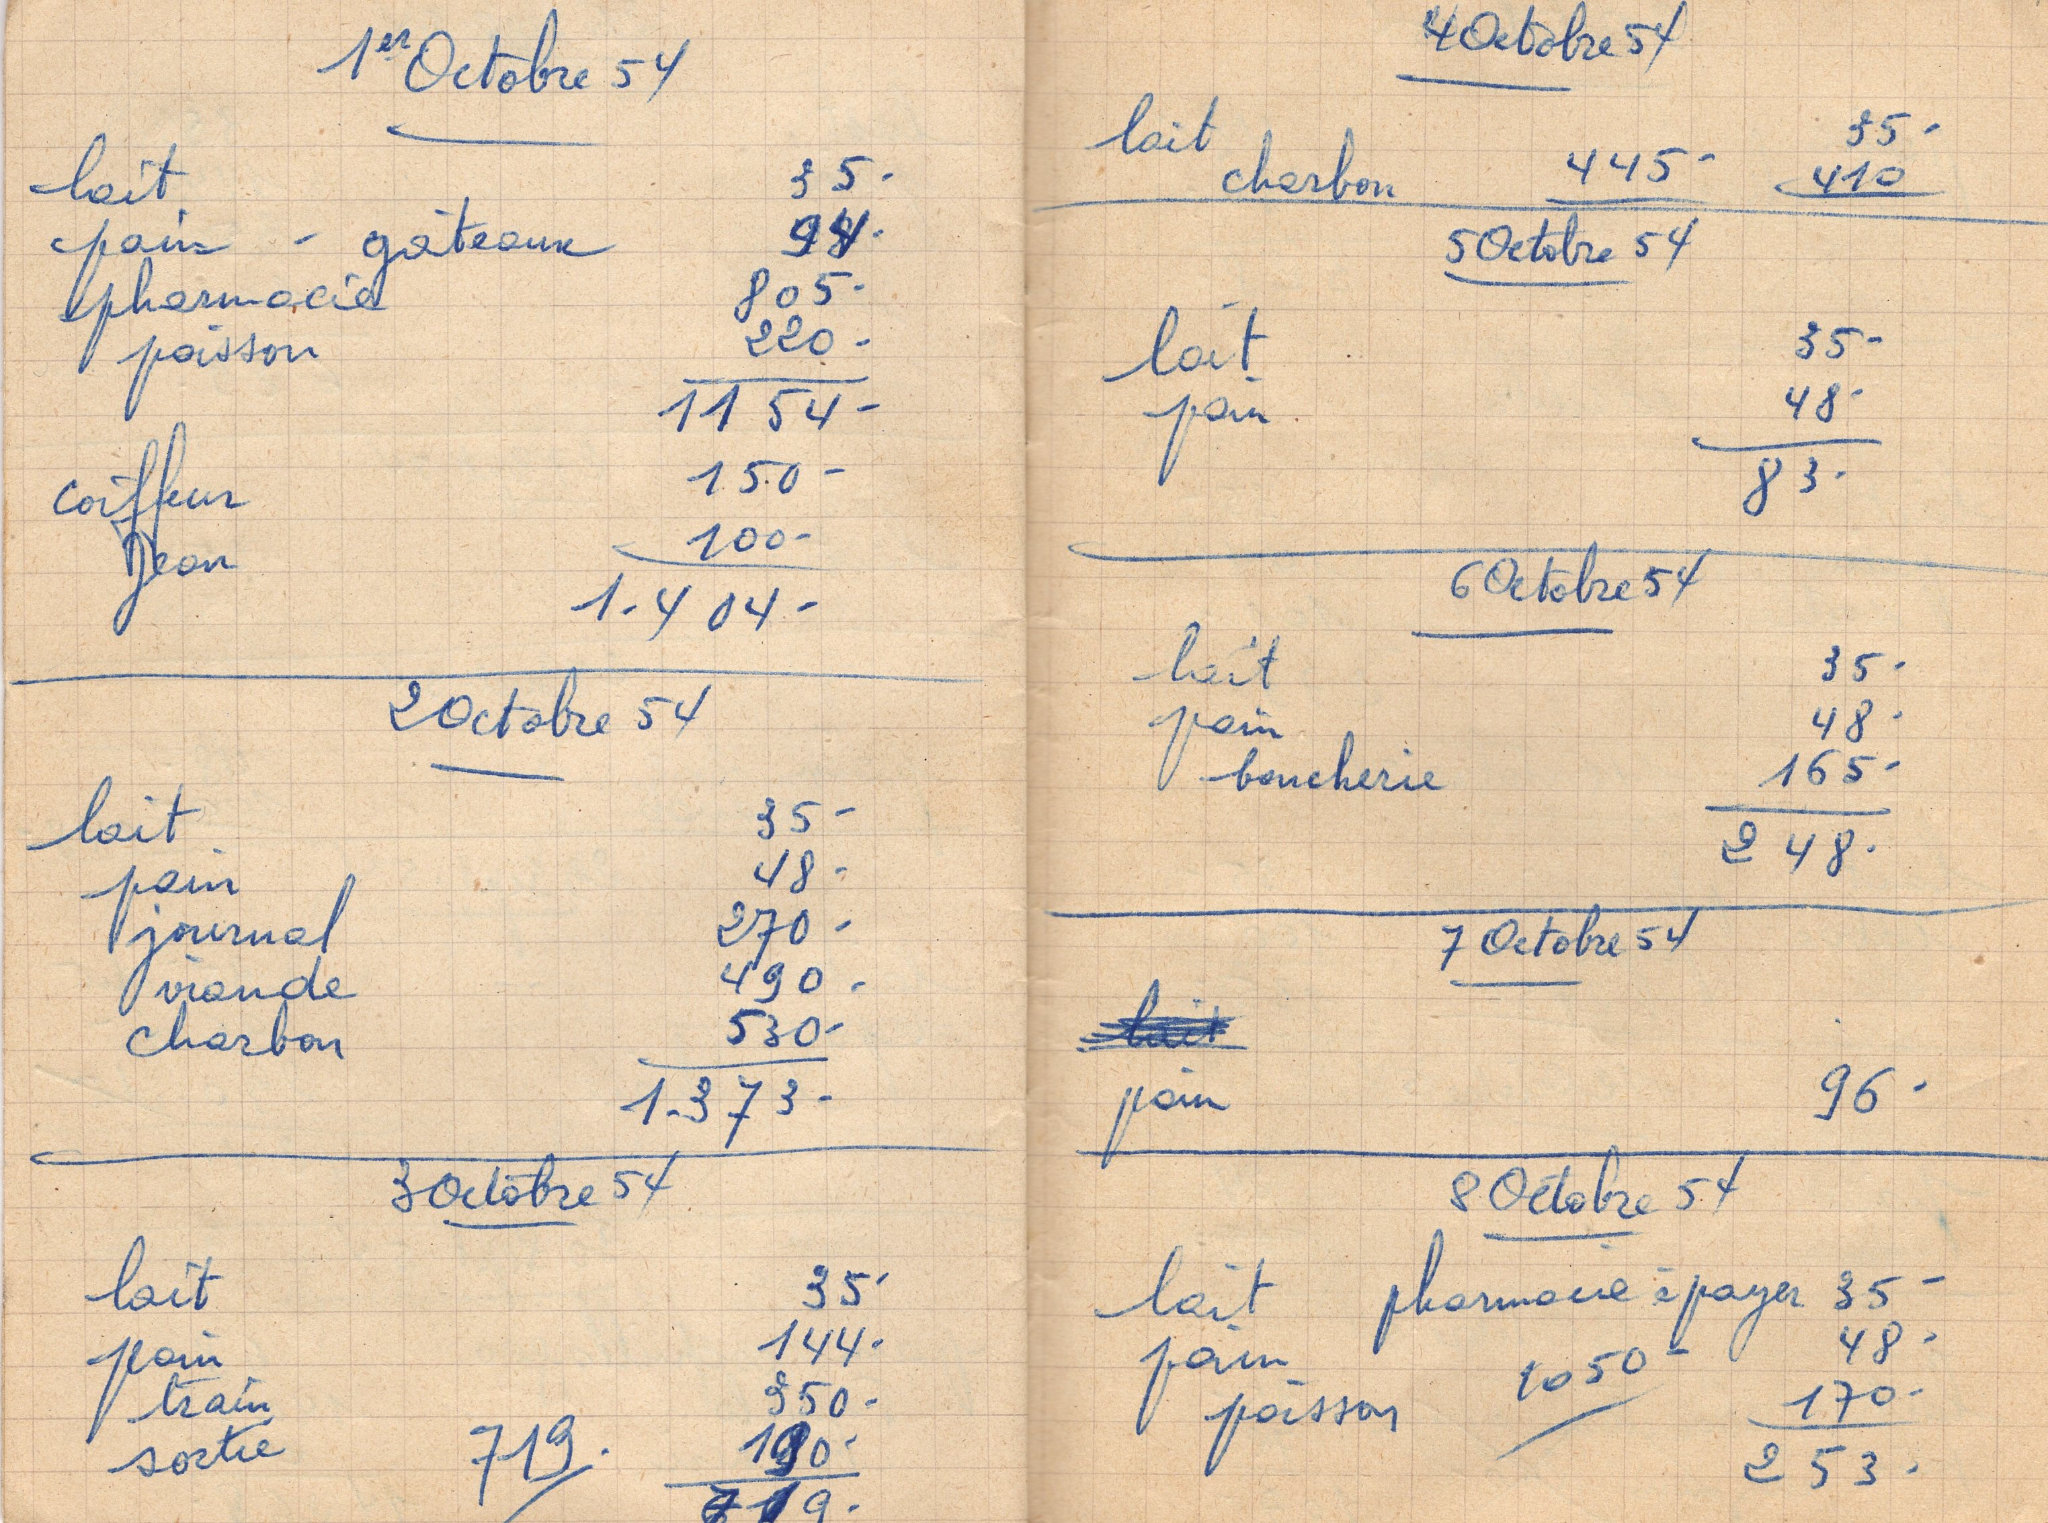 1er Octobre 54
lait 35-
pain - gâteaux 94-
pharmacie 805-
poisson 220-
1154-
coiffeur 150-
Jean 100-
1.404-
2 Octobre 54
lait 35-
pain 48-
journal 270-
viande 490-
charbon 530-
1.373-
3 Octobre 54
lait 35-
pain 144-
train 350-
sortie 719. 190-
719-
4 Octobre 54
lait 35-
charbon 445- 410
5 Octobre 54
lait 35-
pain 48-
83-
6 Octobre 54
lait 35-
pain 48-
boucherie 165-
248-
7 Octobre 54
lait
pain 96-
8 Octobre 54
lait pharmacie à payer 35-
pain 1050- 48-
poisson 170-
253-